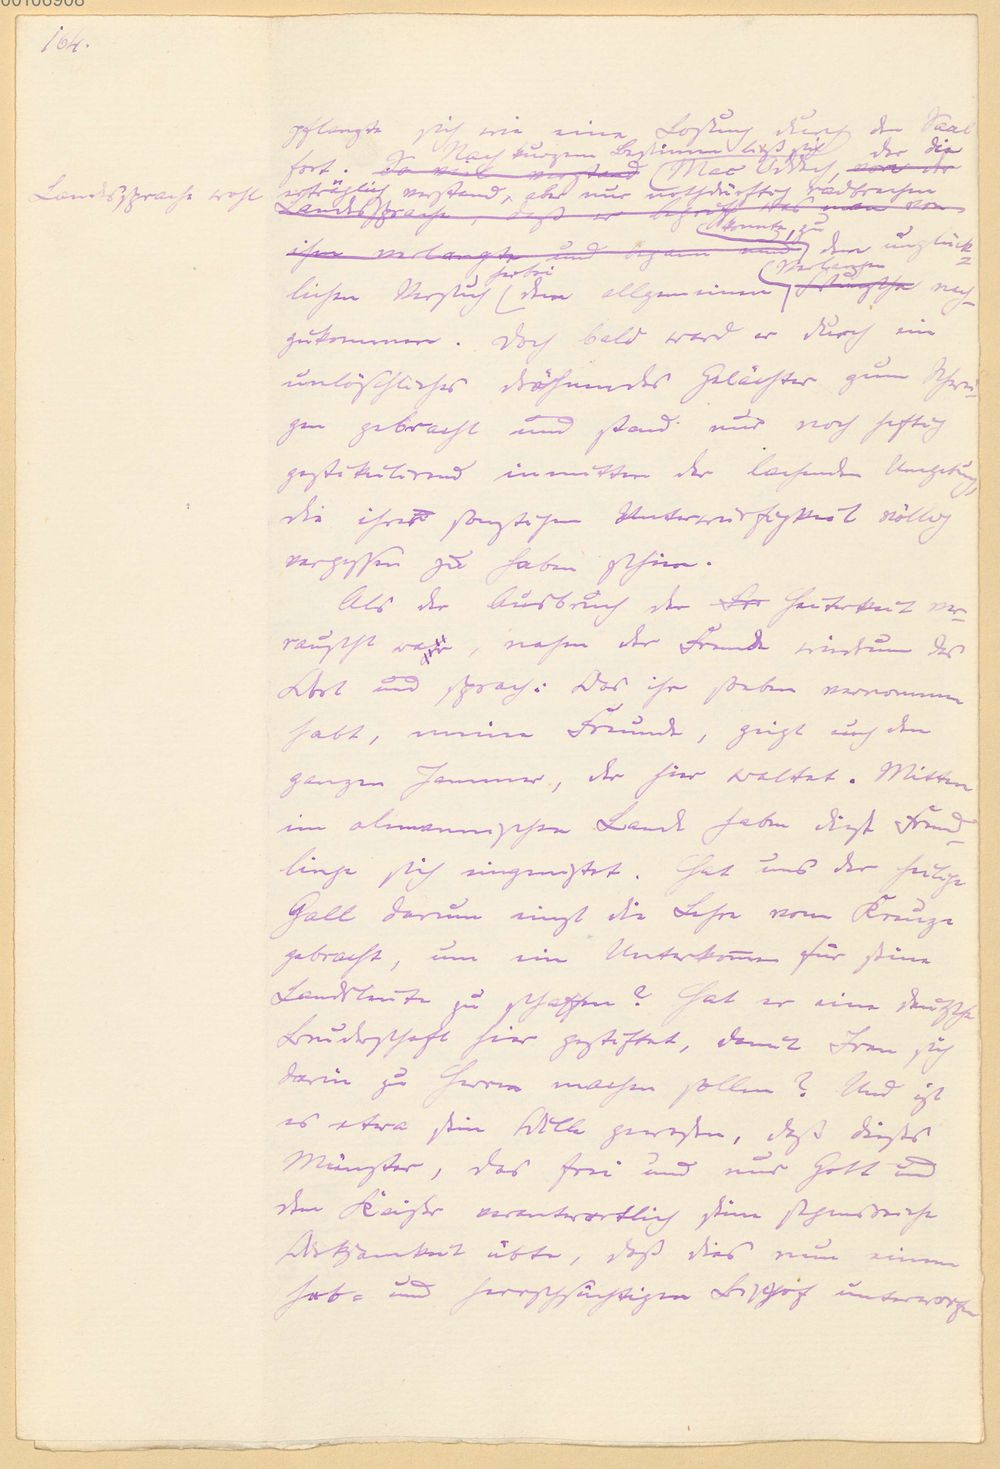 00106908
164.
pflanzte sich wie eine Losung durch den Saal
Nach kurzem Besinnen ließ sich der die
fort. So viel verstand Mac Uddich, von der
Landessprache wohl
erträglich verstand, aber nur nothdürftig radbrechen
Landessprache, daß er begriff was man von
konnte, zu
ihm verlangte und begann nun dem unglück=
herbei Verlangen
lichen Versuch dem allgemeinen Wunsche nach-
zukommen. Doch bald ward er durch ein
unlöschliches dröhnendes Gelächter zum Schwei-
gen gebracht und stand nur noch heftig
gestikulirend inmitten der lachenden Umgebung,
die ihrer sonstigen Unterwürfigkeit völlig
vergessen zu haben schien.
Als der Ausbruch der Heiterkeit ver-
rauscht war, nahm der Fremde wiederum das
Wort und sprach: Was ihr soeben vernommen
habt, meine Freunde, zeigt euch den
ganzen Jammer, der hier waltet. Mitten
im alemannischen Lande haben diese Fremd-
linge sich eingenistet. Hat uns der heilige
Gall darum einst die Lehre vom Kreuze
gebracht, um ein Unterkommen für seine
Landsleute zu schaffen? Hat er eine deutsche
Bruderschaft hier gestiftet, damit Iren sich
darin zu Herren machen sollen? Und ist
es etwa sein Wille gewesen, daß dieses
Münster, das frei und nur Gott und
dem Kaiser verantwortlich seine segensreiche
Wirksamkeit übte, daß dies nun einem
hab= und herrschsüchtigen Bischof unterworfen